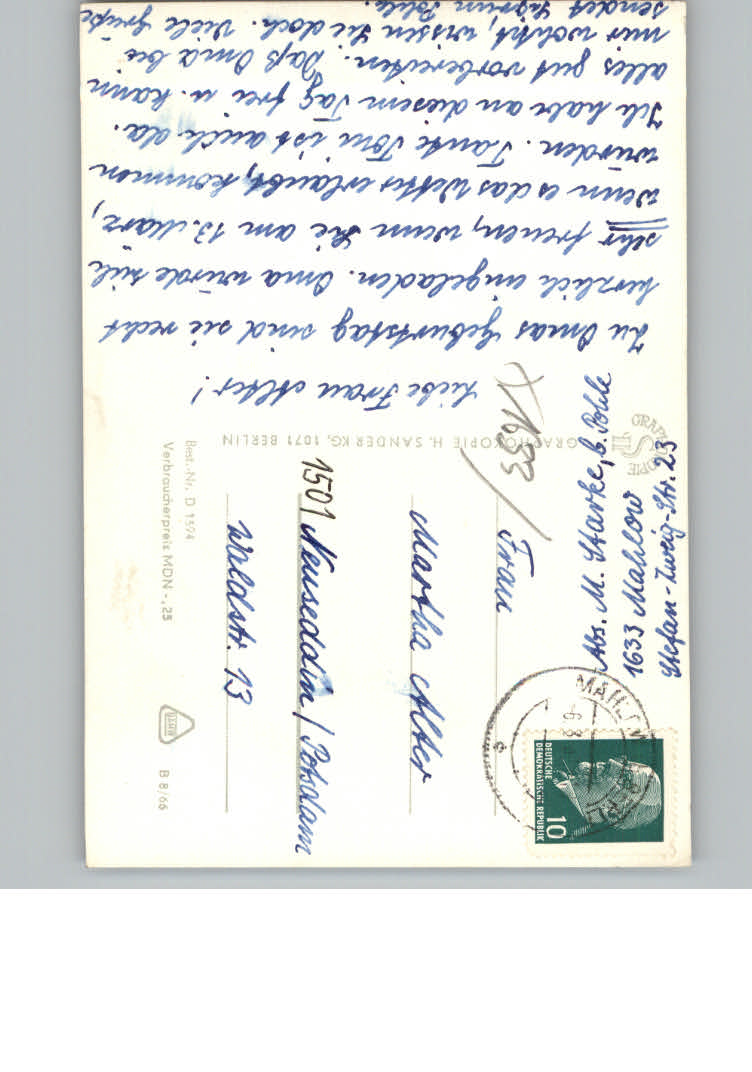 Liebe Frau Alter!
Zu Omas Geburtstag sind sie recht
herzlich eingeladen. Oma würde sich
sehr freuen, wenn Sie am 13. März,
wenn es das Wetter erlaubt, kommen
würden. Tante Toni ist auch da.
Ich habe an diesem Tag frei u. kann
alles gut vorbereiten. Daß Oma bei
mir wohnt, wissen Sie doch. Viele Grüße
sendet Ingrun Pohle.
Abs. M. Starke, b. Pohle
1633 Mahlow
Stefan-Zweig-Str. 23
GRAPHOKOPIE
GRAPHOKOPIE H. SANDER KG, 1071 BERLIN
X1633/
Frau
Martha Alter
1501 Neuseddin / Potsdam
Waldstr. 13
Best.-Nr. D 1594
Verbraucherpreis MDN -,25
B 8/66
MAHLOW
DEUTSCHE
DEMOKRATISCHE REPUBLIK
10